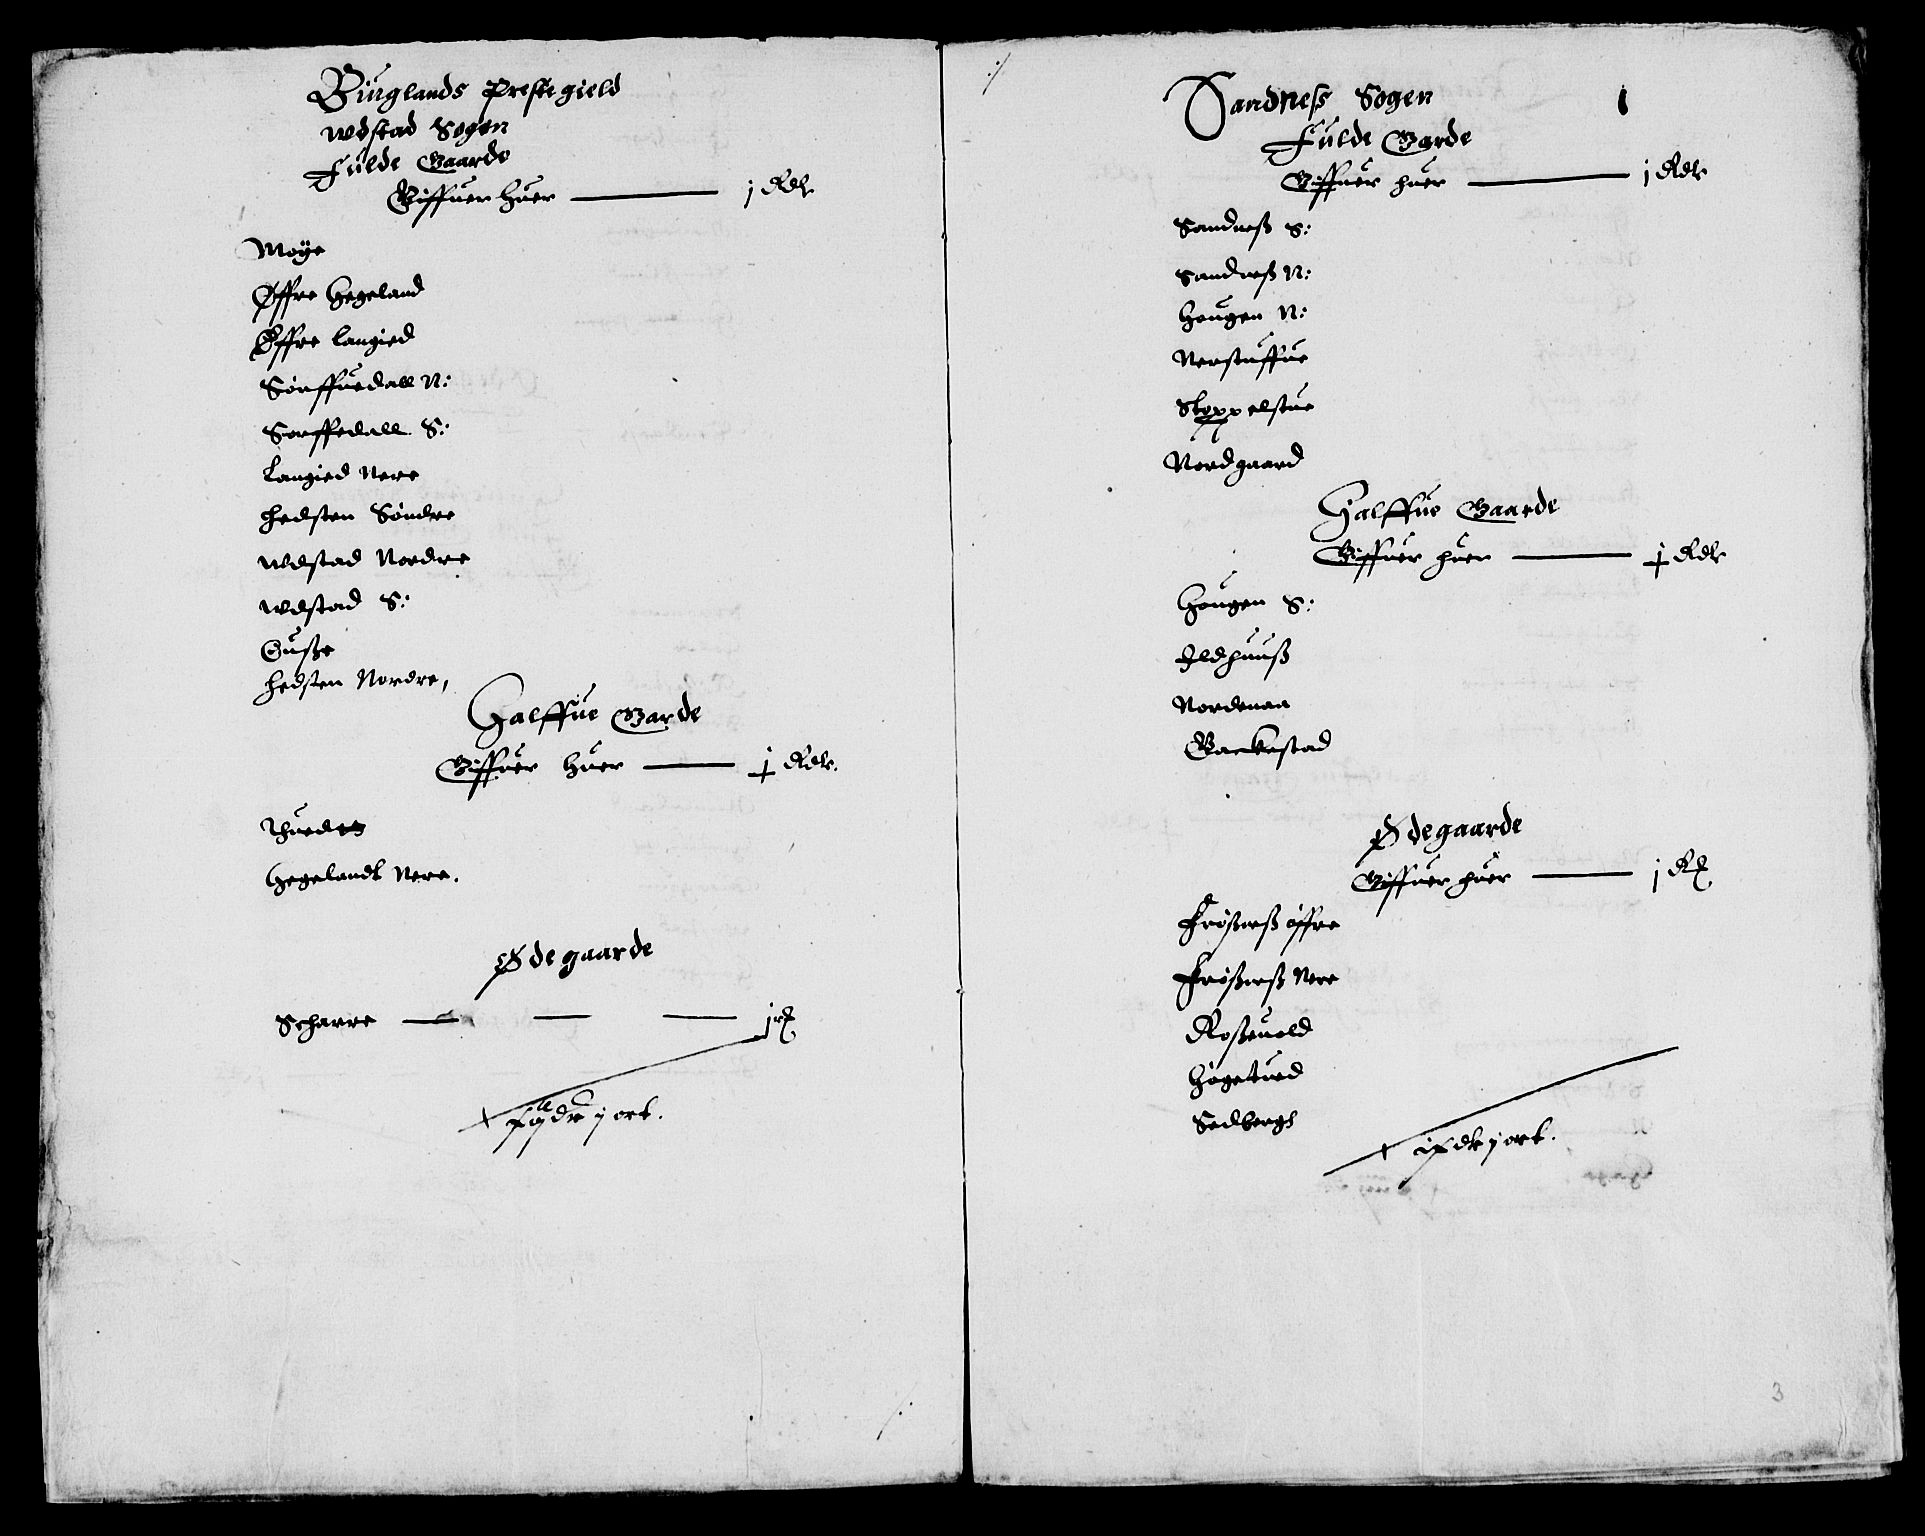 Buiglands Prestegield
Wdstad Sogen
Fulde Gaarde
Giffuer huer — j Rdlr
Moÿe
Øffre Hegeland
Øffre Langied
Sörffuedall N:
Sorffedall S:
Langied Nere
Hedsten Söndre
Wdstad Nordre
Wdstad S:
Ousze
Hedsten Nordre,
Halffue Garde
Giffuer huer — ɉ Rdlr.
Hegelandt Nere.
Ødegaarde
Scharre — — — j rß
j ort.
Sandness Sogen
Fulde Garde
Giffuer huer — j Rdlr
Sandneß S:
Sandneß N:
Hougen N:
Nerstuffue
Stoppelstue
Nordgaard
Halffue Gaarde
Giffuer huer — ɉ Rdlr
Hougen S:
Ildhuuß
Nordenaa
Backestad
Ødegaarde
Giffuer huer — j Rß
Frößneß öffre
Frößneß Nere
Roßeuold
Högetued
Sedbergh
j ort.
3